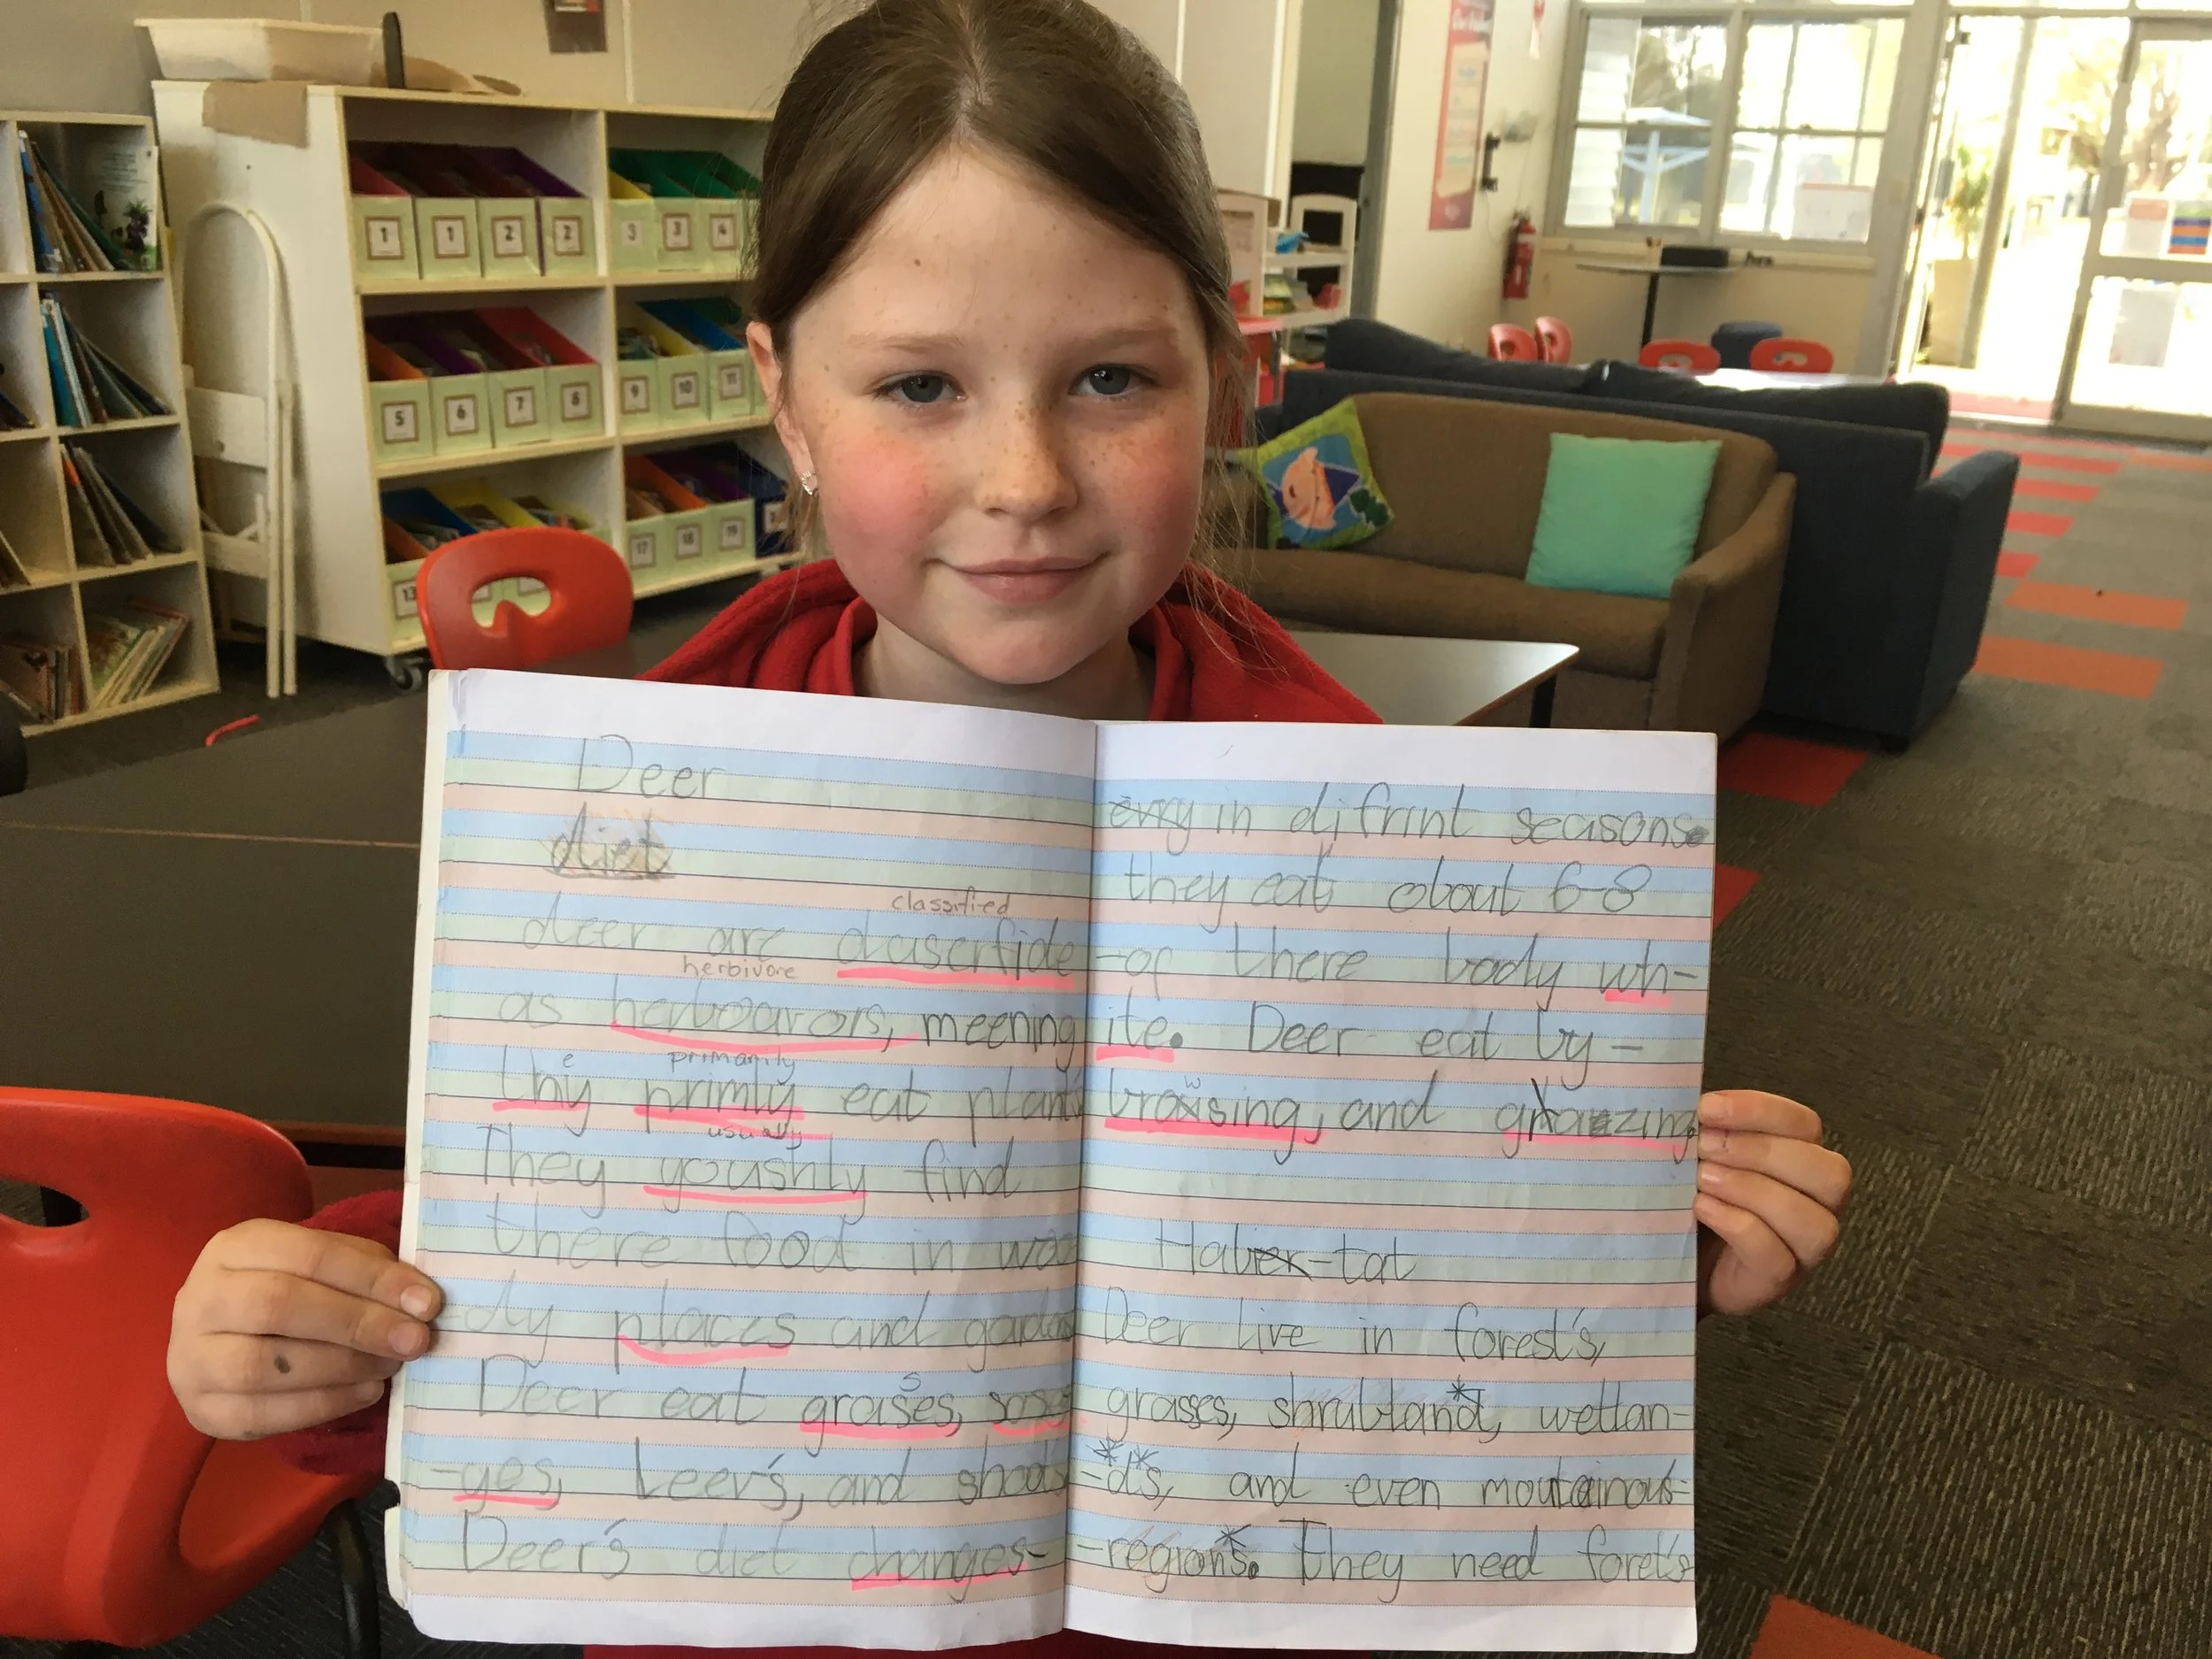 Deer
diet
classified
deer are claserfide
herbivore
as herboarors, meening
e
primarily
thiy primly eat plants
usually
They youshly find
there food in woo
-dy places and gardens
s
Deer eat grases, sose
-ges, Leev's, and shoots
Deer's diet changes-
evry in difrint seasons.
they eat about 6-8
-of there body wh-
ite. Deer eat by-
w
browsing, and grazing
Habi-tat
Deer live in forest's,
grasses, shrubland, wetlan-
-d's, and even moutainous-
-regions. They need foret's
1 1 2 2 3 3 4
5 6 7 8 9 10 11
13 17 18 19